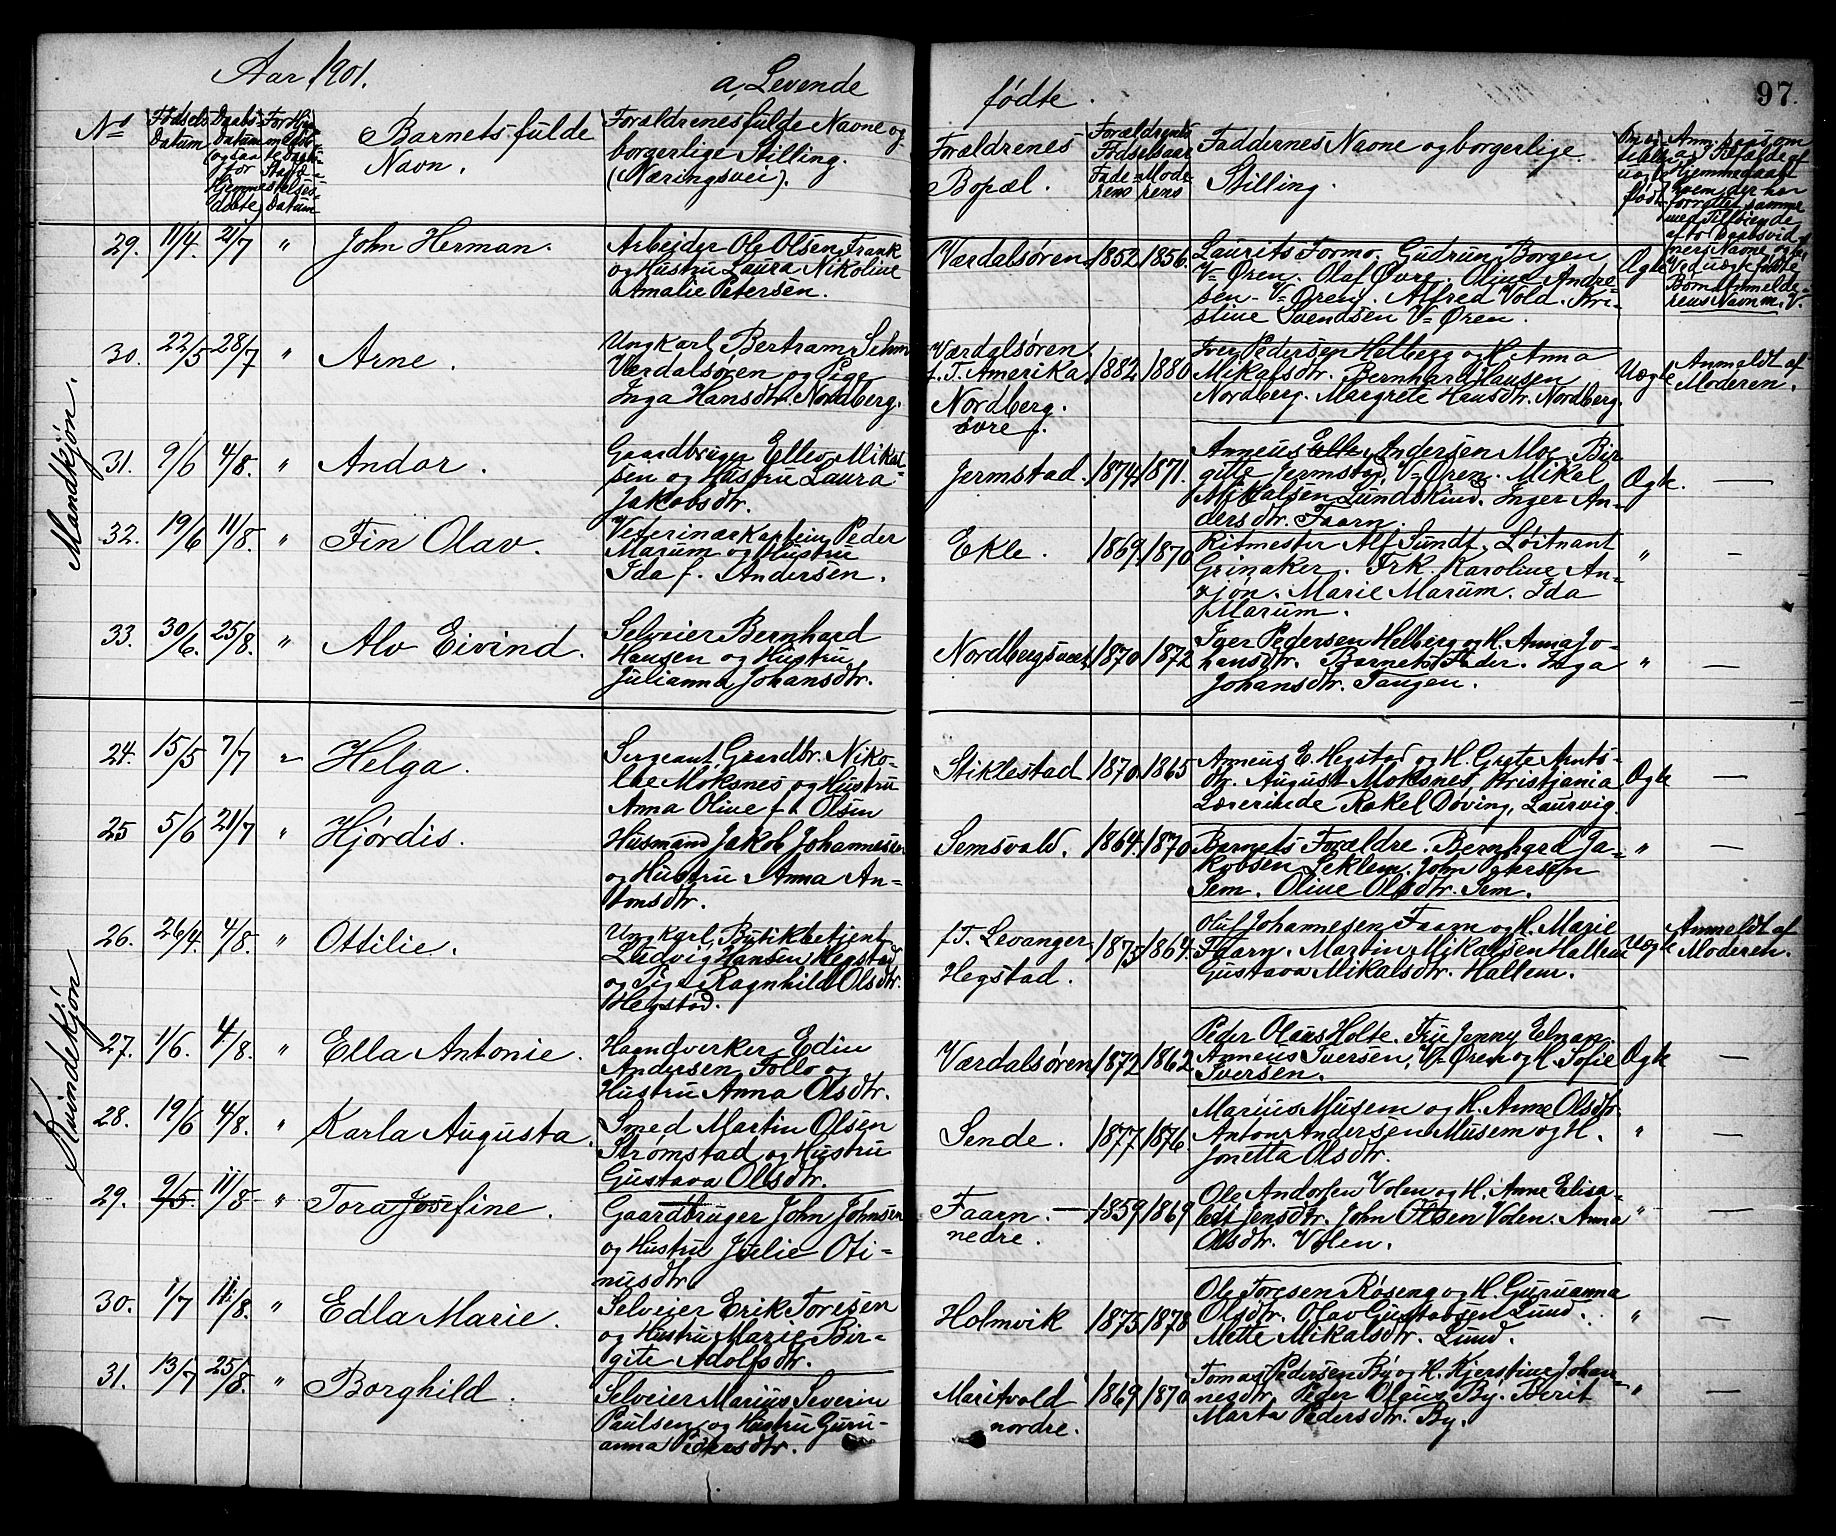 Aar 1901. a, Levende fødte. 97.
No Fødsels Datum Daabs Datum (ogsaa for Hjemmedøbte) Barnets fulde Navn. Forældrenes fulde Navne og borgerlige Stilling. (Næringsvei). Forældrenes Bopæl. Forældrenes Fødselsaar Faderens Moderens Faddernes Navne og borgerlige Stilling.
Mandkjøn.
29. 11/4. 21/7 " John Herman. Arbejder Ole Olsen Frank Værdalsøren 1852 1856. Laurits Formo. Gudrun Borgen Ægte
og Hustru Laura Nikoline V=Øren. Olaf Øvre. Oline Andre=
Amalie Petersen. sen V=Øren. Alfred Vold. Kri=
stine Svendsen V=Øren.
30. 22/5 28/7 " Arne. Ungkarl Bertram Sehm Værdalsøren 1882 1880 Iver Pedersen Helberg og H. Anna Uægte Anmeldt af
Værdalsøren og Pige f. T. Amerika Mikalsdtr. Bernhard Hansen Moderen.
Inga Hansdtr. Nordberg. Nordberg. Nordberg. Margrete Hansdtr. Nordberg.
øvre
31. 9/6 4/8. " Andor. Gaardbruger Ellev Mikal= Jermstad. 1874 1871. Anneus Andersen Moe. Bir= Ægte. —
sen og Hustru Laura gitte Jermstad, V=Øren. Mikal
Jakobsdtr. Mikalsen Lundskind. Inger An=
dersdtr. Faarn.
32. 19/6 11/8. " Fin Olav. Veterinærkaptein Peder Ekle. 1869 1870 Ritmester Alf Sundt, Løitnant " —
Marum og Hustru Grinaker. Frk. Karoline An=
Ida f. Andersen. zjøn. Marie Marum. Ida
Marum.
33. 30/6. 25/8. " Alv Eivind. Selveier Bernhard Nordbergsvæt 1870 1872 Iver Pedersen Helberg og H. Anna Jo= " —
Hansen og Hustru hansdtr. Barnets Fader. Inga
Julianna Johansdtr. Johansdtr. Tangen.
Kvindekjøn
24. 15/5 7/7 " Helga. Sergeant, Gaardbr. Niko= Stiklestad 1870 1865 Anneus E. Hegstad og H. Grete Arnts= Ægte —
lai Moksnes og Hustru dtr. August Moksnes, Kristjania
Anna Oline f. Olsen Lærerinde Rakel Døving, Laurvig.
25 5/6 21/7 " Hjørdis. Husmand Jakob Johannesen Semsvald. 1864 1870 Barnets Forældre. Bernhard Ja= " —
og Hustru Anna An= kobsen Seklem. John Petersen
tonsdtr. Sem. Oline Olsdtr. Sem.
26. 26/4. 4/8. " Ottilie. Ungkarl, Butikbetjent f. T. Levanger 1873 1864. Oluf Johannesen Faarn og H. Marie Uægte Anmeldt af
Ludvig Hansen Hegstad Hegstad. Faarn. Martin Mikalsen Hallem Moderen.
og Pige Ragnhild Olsdtr. Gustava Mikalsdtr. Hallem.
Hegstad.
27. 1/6. 4/8. " Ella Antonie. Haandverker Edin Værdalsøren 1872 1862 Peder Olaus Holte. Fru Jenny Elman. Ægte —
Andersen Follo og Anneus Iversen, V=Øren og H. Sofie
Hustru Anna Olsdtr. Iversen.
28. 19/6 4/8. " Karla Augusta. Smed Martin Olsen Sende. 1877 1876 Marius Musem og H. Anne Olsdtr. " —
Strømstad og Hustru Anton Andersen Musem og H.
Gustava Olsdtr. Jonetta Olsdtr.
29. 9/5. 11/8 " Tora Josefine. Gaardbruger John Johnsen Faarn. — 1859 1869 Ole Andorsen Volen og H. Anne Elisa= " —
og Hustru Julie Oti= nedre. bet Jensdtr. John Olsen Volen. Anna
nusdtr Olsdtr. Volen.
30. 1/7 11/8. " Edla Marie. Selveier Erik Toresen Holmvik 1875 1878 Ole Toresen Røseng og H. Guruanna " —
og Hustru Marie Bir= Olsdtr. Olav Gustavsen Lund.
gite Adolfsdtr. Mette Mikalsdtr. Lund.
31. 13/7 25/8. " Borghild. Selveier Marius Severin Maritvold 1869 1870 Tomas Pedersen By og H. Kjerstine Johan= " —
Paulsen og Hustru Guru= nordre. nesdtr. Peder Olaus By. Berit
anna Pedersdtr. Marta Pedersdtr. By.